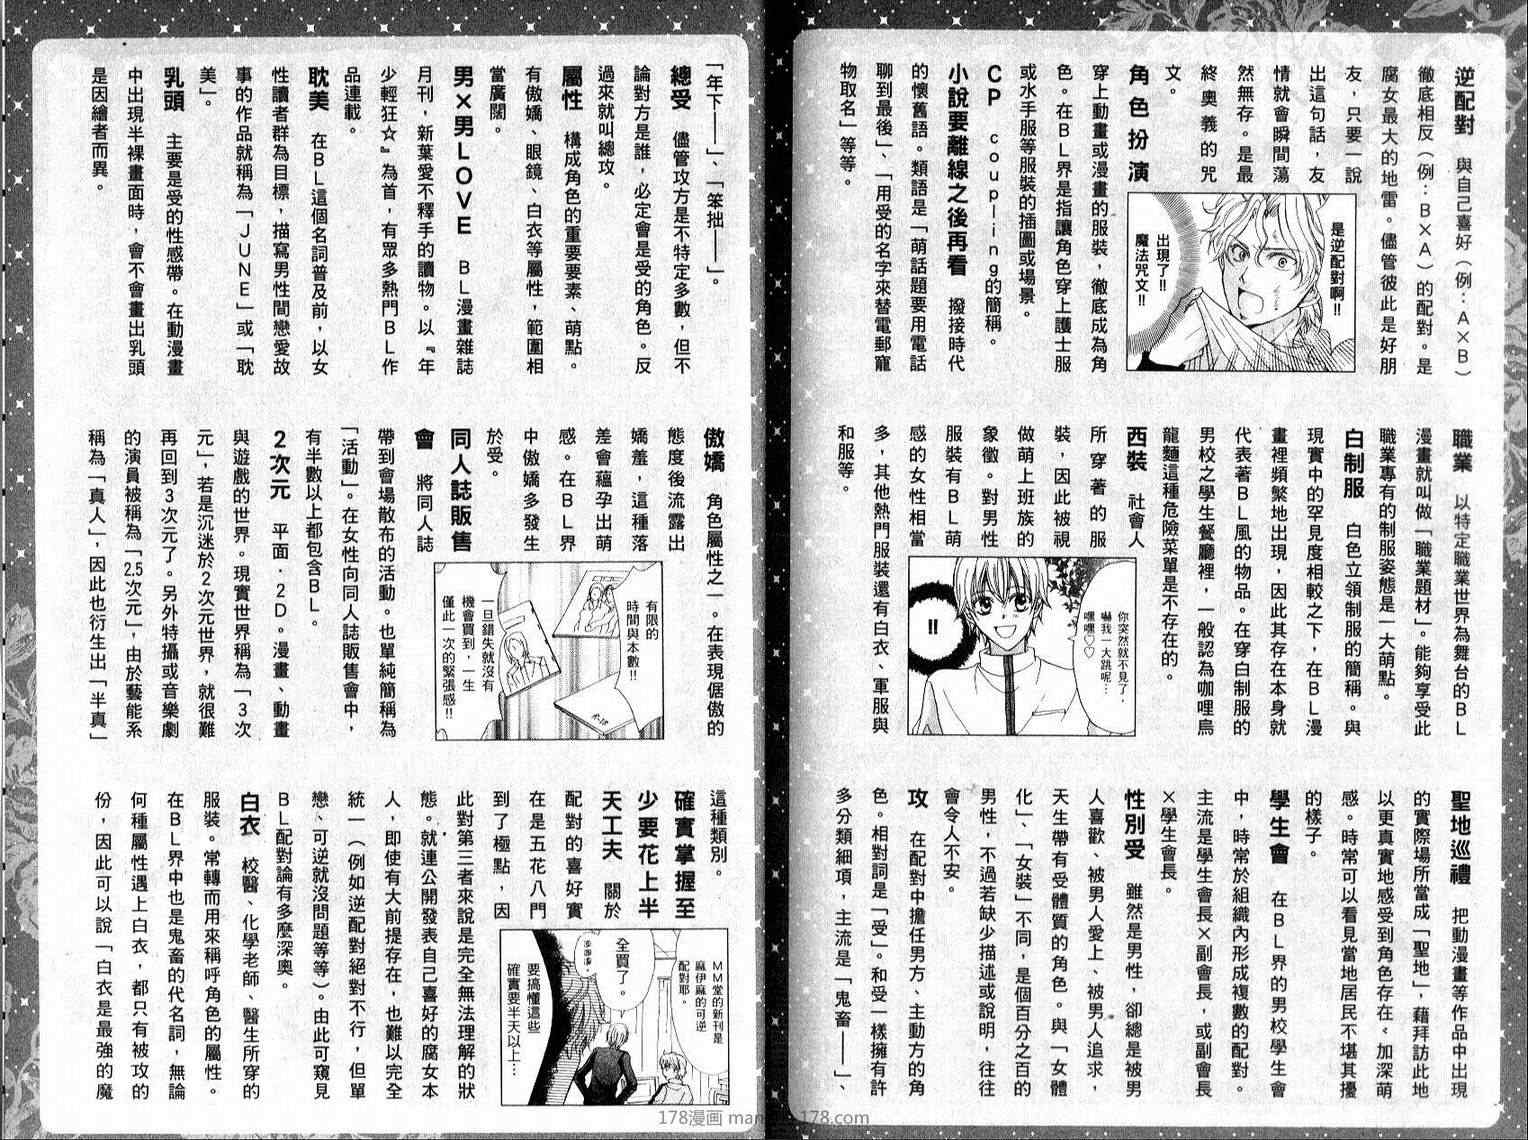 逆配對　與自己喜好（例：A×B）
徹底相反（例：B×A）的配對。是
腐女最大的地雷。儘管彼此是好朋
友，只要一說
出這句話，友
情就會瞬間蕩
然無存。是最
終奧義的咒
文。
是逆配對啊!!
出現了!!
魔法咒文!!
角色扮演
穿上動畫或漫畫的服裝，徹底成為角
色。在BL界是指讓角色穿上護士服
或水手服等服裝的插圖或場景。
CP　coupling的簡稱。
小說要離線之後再看　撥接時代
的懷舊語。類語是「萌話題要用電話
聊到最後」、「用受的名字來替電郵寵
物取名」等等。
職業　以特定職業世界為舞台的BL
漫畫就叫做「職業題材」。能夠享受此
職業專有的制服姿態是一大萌點。
白制服　白色立領制服的簡稱。與
現實中的罕見度相較之下，在BL漫
畫裡頻繁地出現，因此其存在本身就
代表著BL風的物品。在穿白制服的
男校之學生餐廳裡，一般認為咖哩烏
龍麵這種危險菜單是不存在的。
西裝　社會人
所穿著的服
裝，因此被視
做萌上班族的
象徵。對男性
服裝有BL萌
感的女性相當
多，其他熱門服裝還有白衣、軍服與
和服等。
你突然就不見了，
嚇我一大跳呢…
嘿嘿♡
!!
聖地巡禮　把動漫畫等作品中出現
的實際場所當成「聖地」，藉拜訪此地
以更真實地感受到角色存在，加深萌
感。時常可以看見當地居民不堪其擾
的樣子。
學生會　在BL界的男校學生會
中，時常於組織內形成複數的配對。
主流是學生會長×副會長，或副會長
×學生會長。
性別受　雖然是男性，卻總是被男
人喜歡、被男人愛上、被男人追求，
天生帶有受體質的角色。與「女體
化」、「女裝」不同，是個百分之百的
男性，不過若缺少描述或說明，往往
會令人不安。
攻　在配對中擔任男方、主動方的角
色。相對詞是「受」。和受一樣擁有許
多分類細項，主流是「鬼畜——」、
「年下——」、「笨拙——」。
總受　儘管攻方是不特定多數，但不
論對方是誰，必定會是受的角色。反
過來就叫總攻。
屬性　構成角色的重要要素、萌點。
有傲嬌、眼鏡、白衣等屬性，範圍相
當廣闊。
男×男LOVE　BL漫畫雜誌
月刊，新葉愛不釋手的讀物。以『年
少輕狂☆』為首，有眾多熱門BL作
品連載。
耽美　在BL這個名詞普及前，以女
性讀者群為目標，描寫男性間戀愛故
事的作品就稱為「JUNE」或「耽
美」。
乳頭　主要是受的性感帶。在動漫畫
中出現半裸畫面時，會不會畫出乳頭
是因繪者而異。
傲嬌　角色屬性之一。在表現倨傲的
態度後流露出
嬌羞，這種落
差會蘊孕出萌
感。在BL界
中傲嬌多發生
於受。
同人誌販售
會　將同人誌
帶到會場散布的活動。也單純簡稱為
「活動」。在女性向同人誌販售會中，
有半數以上都包含BL。
有限的
時間與本數!!
一旦錯失就沒有
機會買到，一生
僅此一次的緊張感!!
2次元　平面．2D。漫畫、動畫
與遊戲的世界。現實世界稱為「3次
元」，若是沉迷於2次元世界，就很難
再回到3次元了。另外特攝或音樂劇
的演員被稱為「2.5次元」，由於藝能系
稱為「真人」，因此也衍生出「半真」
這種類別。
確實掌握至
少要花上半
天工夫　關於
配對的喜好實
在是五花八門
到了極點，因
此對第三者來說是完全無法理解的狀
態。就連公開發表自己喜好的腐女本
人，即使有大前提存在，也難以完全
統一（例如逆配對絕對不行，但單
戀、可逆就沒問題等等）。由此可窺見
BL配對論有多麼深奧。
MM堂的新刊是
麻伊麻的可逆
配對耶。
全買了。
要搞懂這些
確實要半天以上…
白衣　校醫、化學老師、醫生所穿的
服裝。常轉而用來稱呼角色的屬性。
在BL界中也是鬼畜的代名詞，無論
何種屬性遇上白衣，都只有被攻的
份，因此可以說「白衣是最強的魔
178漫画